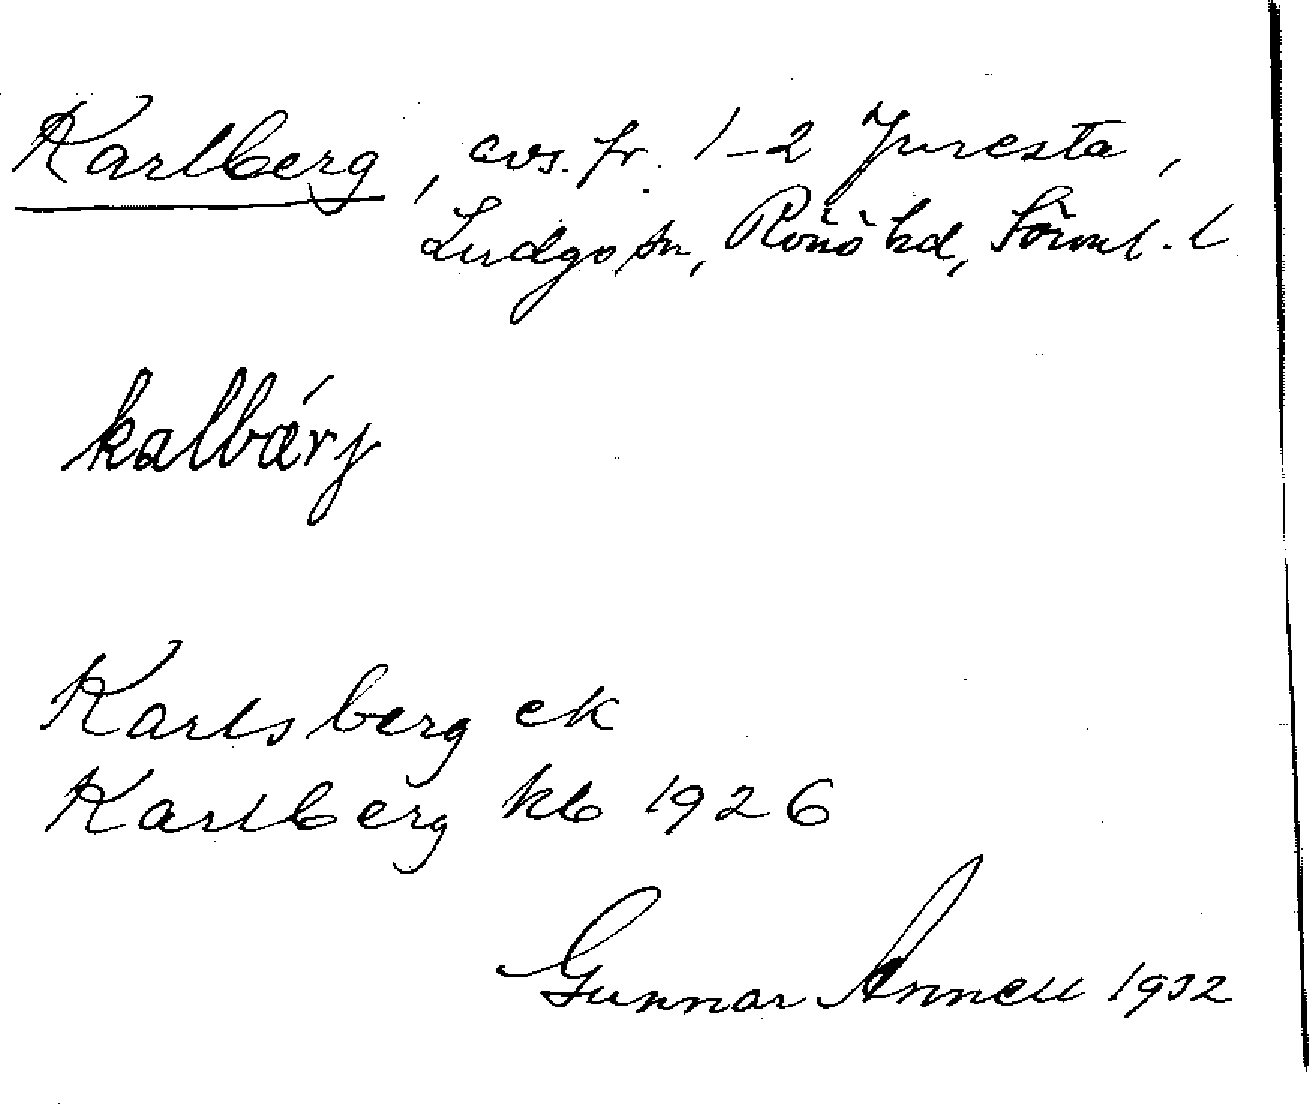 Karlberg, avs. fr. 1-2 Juresta,
Ludgo sn, Rönö hd, Sörml. l
kalbǽrj
Karlsberg ek
Karlberg kb 1926
Gunnar Annell 1932